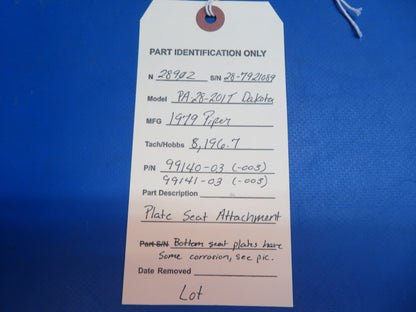 PART IDENTIFICATION ONLY
N 2890Z S/N 28-7921089
Model PA-28-201T Dakota
MFG 1979 Piper
Tach/Hobbs 8,196.7
P/N 99140-03 (-003)
99141-03 (-003)
Part Description
Plate Seat Attachment
Part S/N Bottom seat plates have
Some corrosion, see pic.
Date Removed
Lot